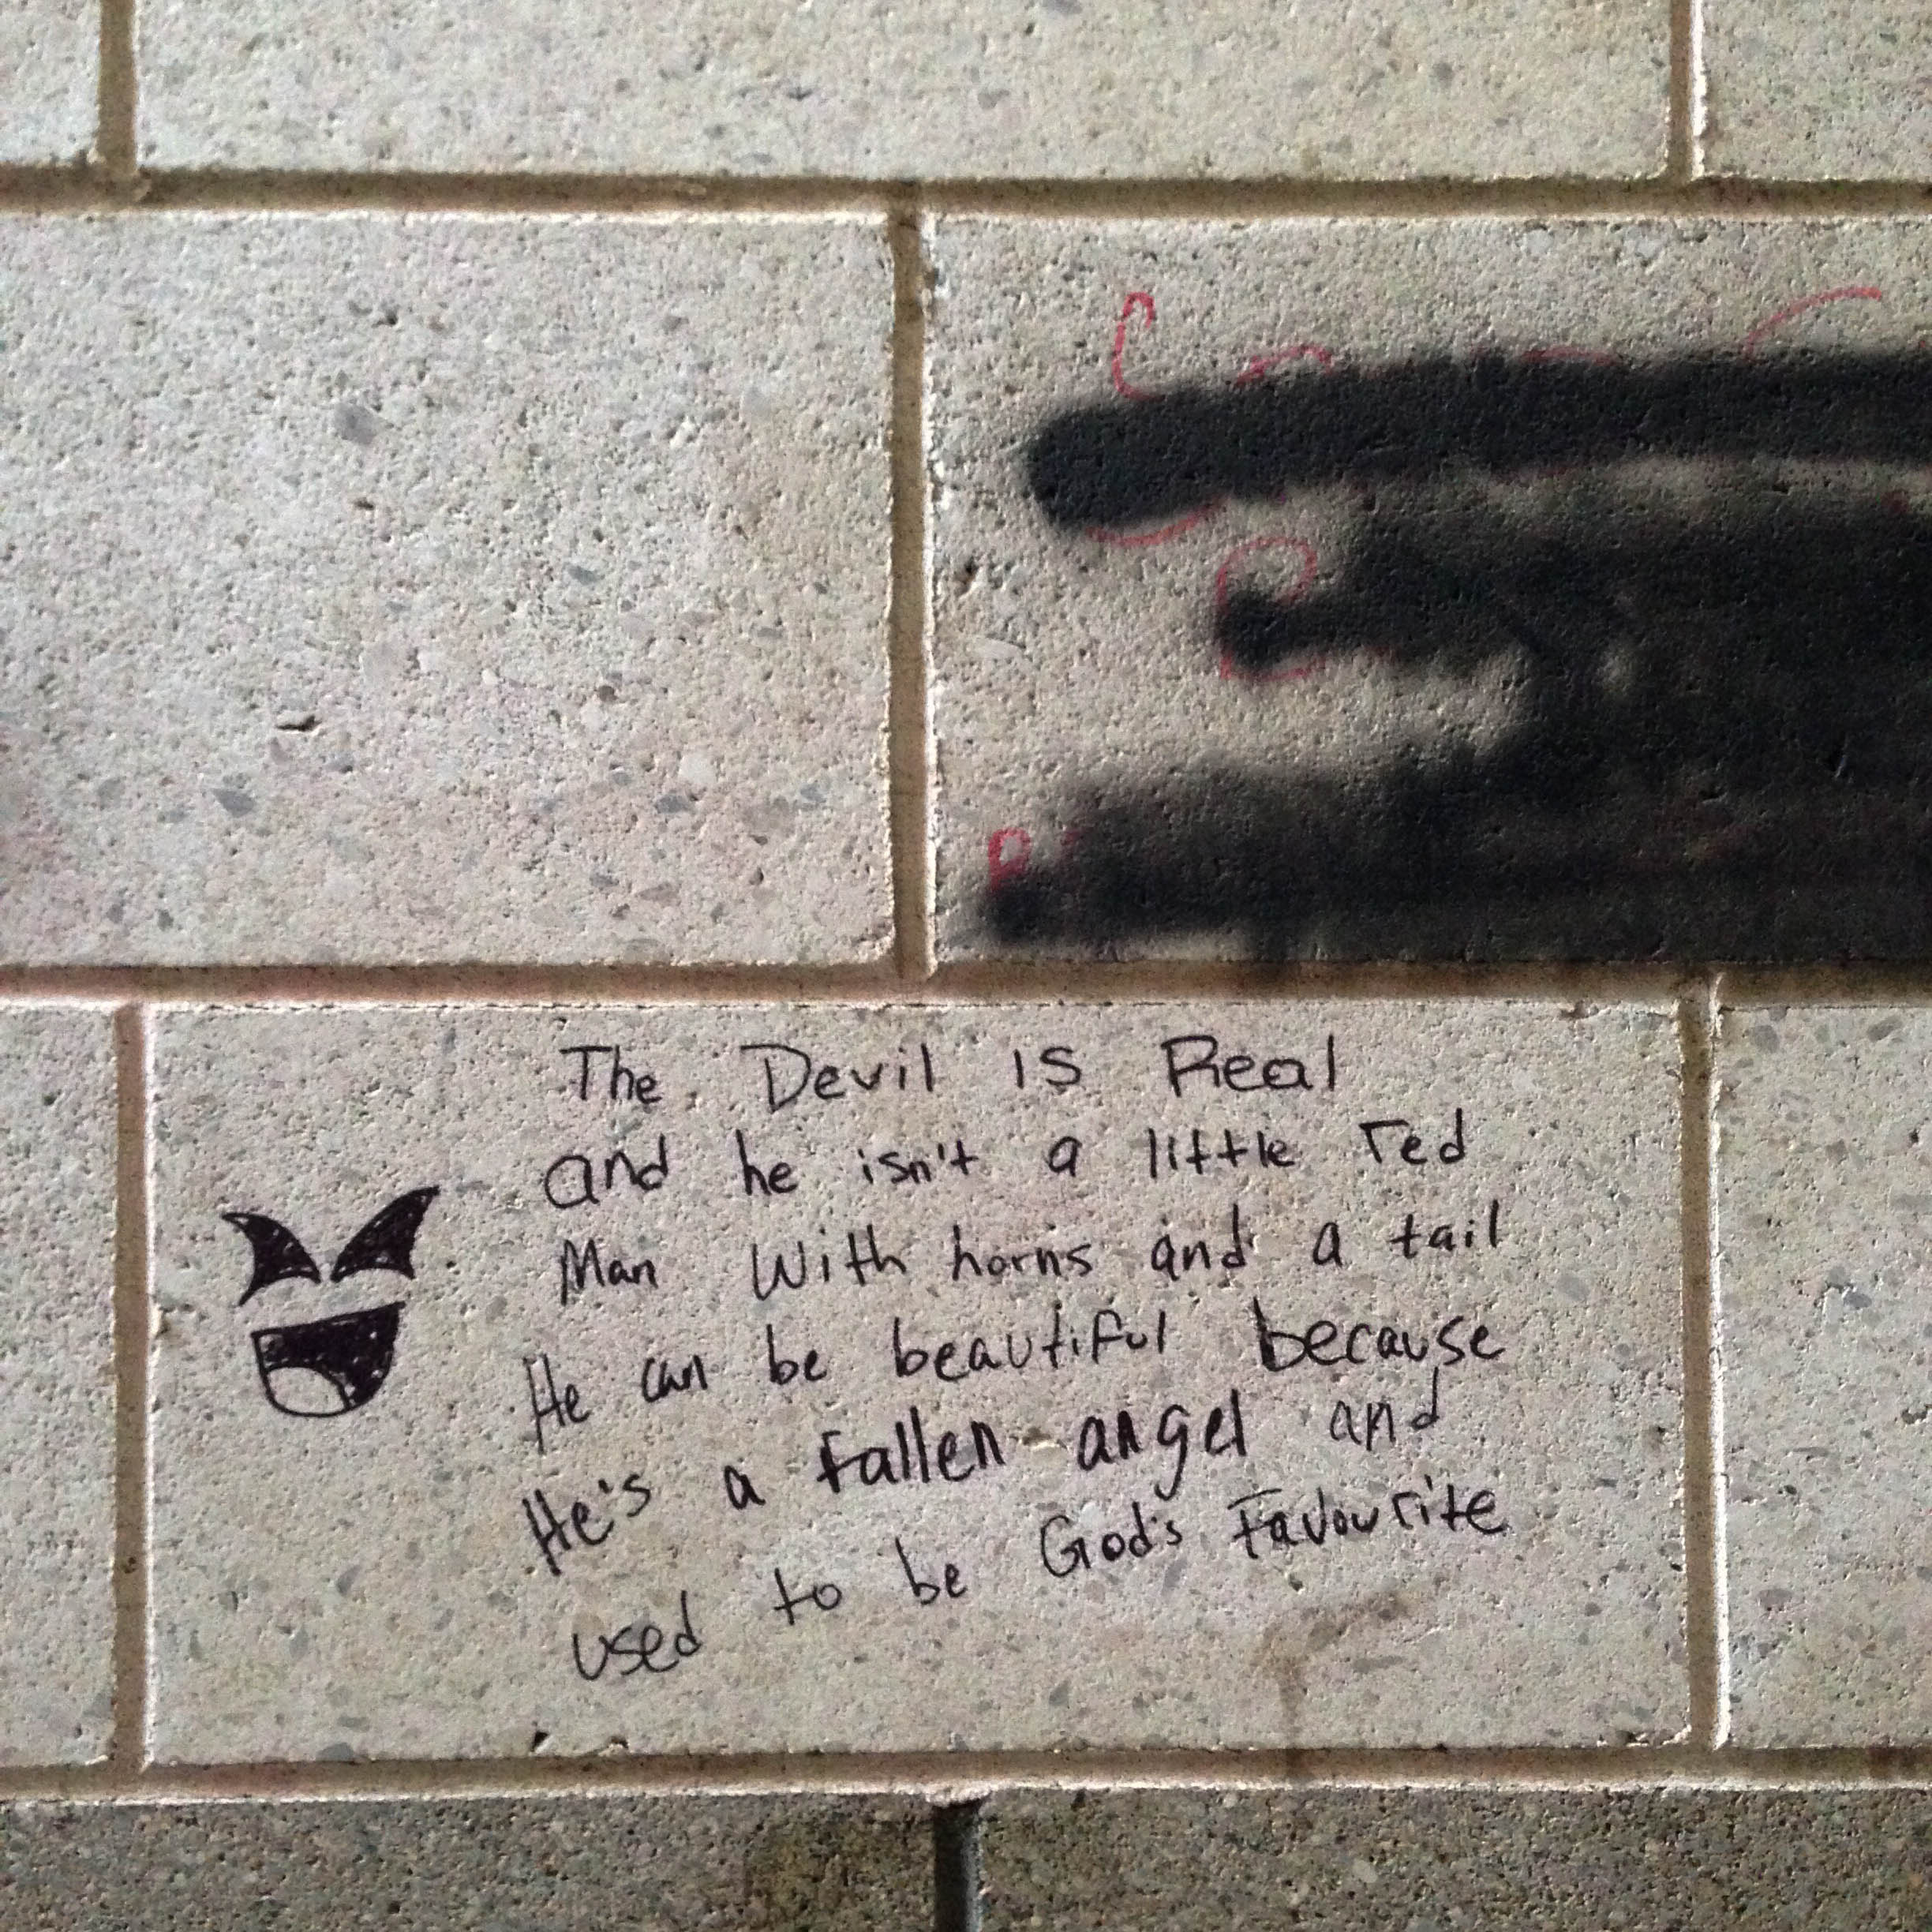 The Devil is Real
and he isn't a little red
Man With horns and a tail
He can be beautiful because
He's a fallen angel and
used to be God's Favourite